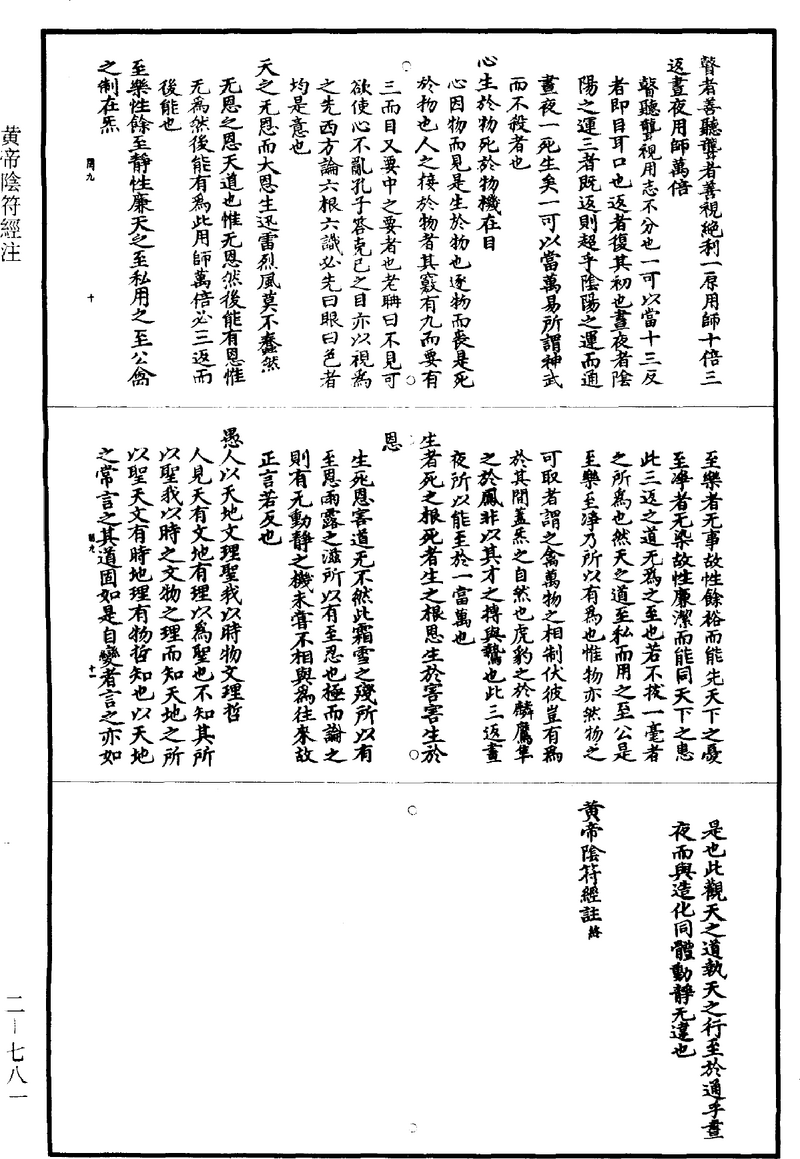 瞽者善聽聾者善視絕利一原用師十倍三
返晝夜用師萬倍
瞽聽聾視用志不分也一可以當十三反
者即目耳口也返者復其初也晝夜者陰
陽之運三者既返則超乎陰陽之運而通
晝夜一死生矣一可以當萬易所謂神武
而不殺者也
心生於物死於物機在目
心因物而見是生於物也逐物而喪是死
於物也人之接於物者其竅有九而要有
三而目又要中之要者也老聃曰不見可
欲使心不亂孔子答克己之目亦以視爲
之先西方論六根六識必先曰眼曰色者
均是意也
天之无恩而大恩生迅雷烈風莫不蠢然
无恩之恩天道也惟无恩然後能有恩惟
无爲然後能有爲此用師萬倍必三返而
後能也
至樂性餘至靜性廉天之至私用之至公禽
之制在炁
十
至樂者无事故性餘裕而能先天下之憂
至凈者无染故性廉潔而能同天下之患
此三返之道无爲之至也若不拔一毫者
之所爲也然天之道至私而用之至公是
至樂至凈乃所以有爲也惟物亦然物之
可取者謂之禽萬物之相制伏彼豈有爲
於其間蓋炁之自然也虎豹之於麟鷹隼
之於鳳非以其才之搏與鷙也此三返晝
夜所以能至於一當萬也
生者死之根死者生之根恩生於害害生於
恩
生死恩害道无不然此霜雪之殘所以有
至恩雨露之滋所以有至忍也極而論之
則有无動靜之機未嘗不相與爲往來故
正言若反也
愚人以天地文理聖我以時物文理哲
人見天有文地有理以爲聖也不知其所
以聖我以時之文物之理而知天地之所
以聖天文有時地理有物哲知也以天地
之常言之其道固如是自變者言之亦如
十一
是也此觀天之道執天之行至於通乎晝
夜而與造化同體動靜无違也
黃帝陰符經註終
黄帝陰符經注
二－七八一